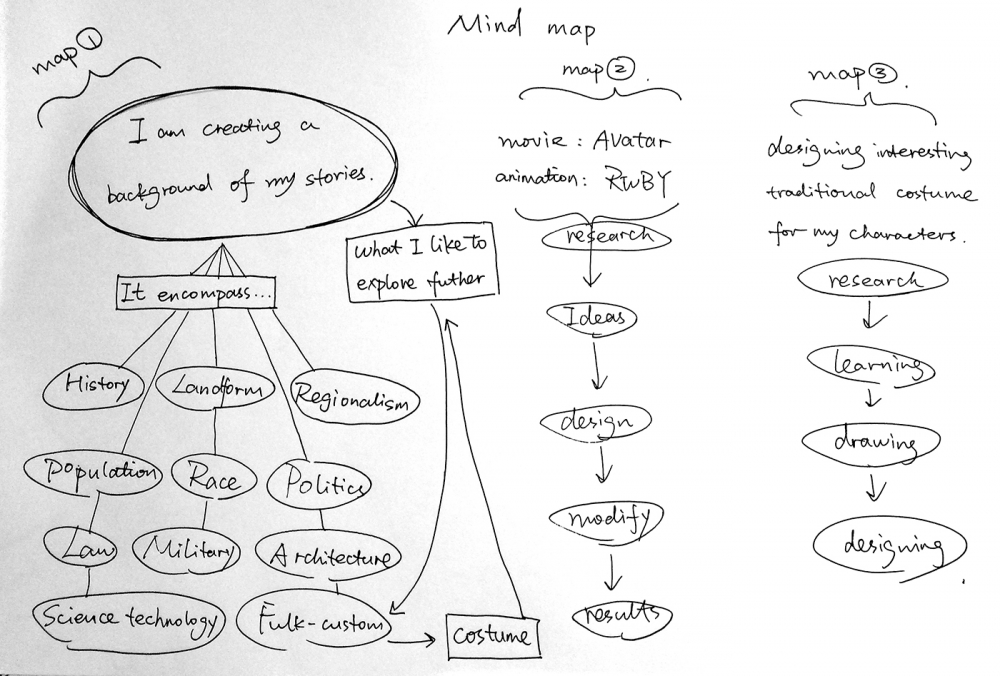 Mind map
map ①
I am creating a
background of my stories.
what I like to
explore futher
It encompass...
History
Landform
Regionalism
Population
Race
Politics
Law
Military
Architecture
Science technology
Fulk-custom
costume
map ②.
movie : Avatar
animation : RWBY
research
Ideas
design
modify
results
map ③.
designing interesting
traditional costume
for my characters.
research
learning
drawing
designing